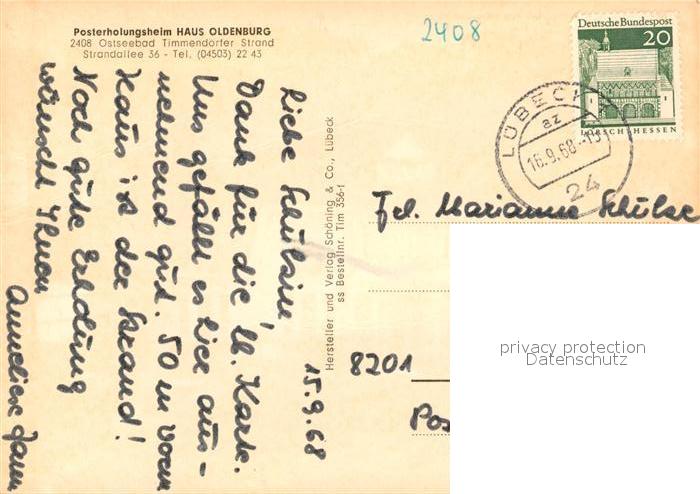 Posterholungsheim HAUS OLDENBURG
2408 Ostseebad Timmendorfer Strand
Strandallee 36 - Tel. (04503) 22 43
2408
Deutsche Bundespost
20
LORSCH-HESSEN
LÜBECK
az
16.9.68.-15
24
15.9.68
Liebe Schulsin!
Dank für die lb. Karte.
Uns gefällt es hier aus-
nehmend gut. 50 m vorm
Haus ist der Strand!
Noch gute Erholung
wünscht Ihnen
Anneliese
Hersteller und Verlag Schöning & Co., Lübeck
ss Bestellnr. Tim 356-f
Frl. Marianne Schulse
8201
Pos
privacy protection
Datenschutz